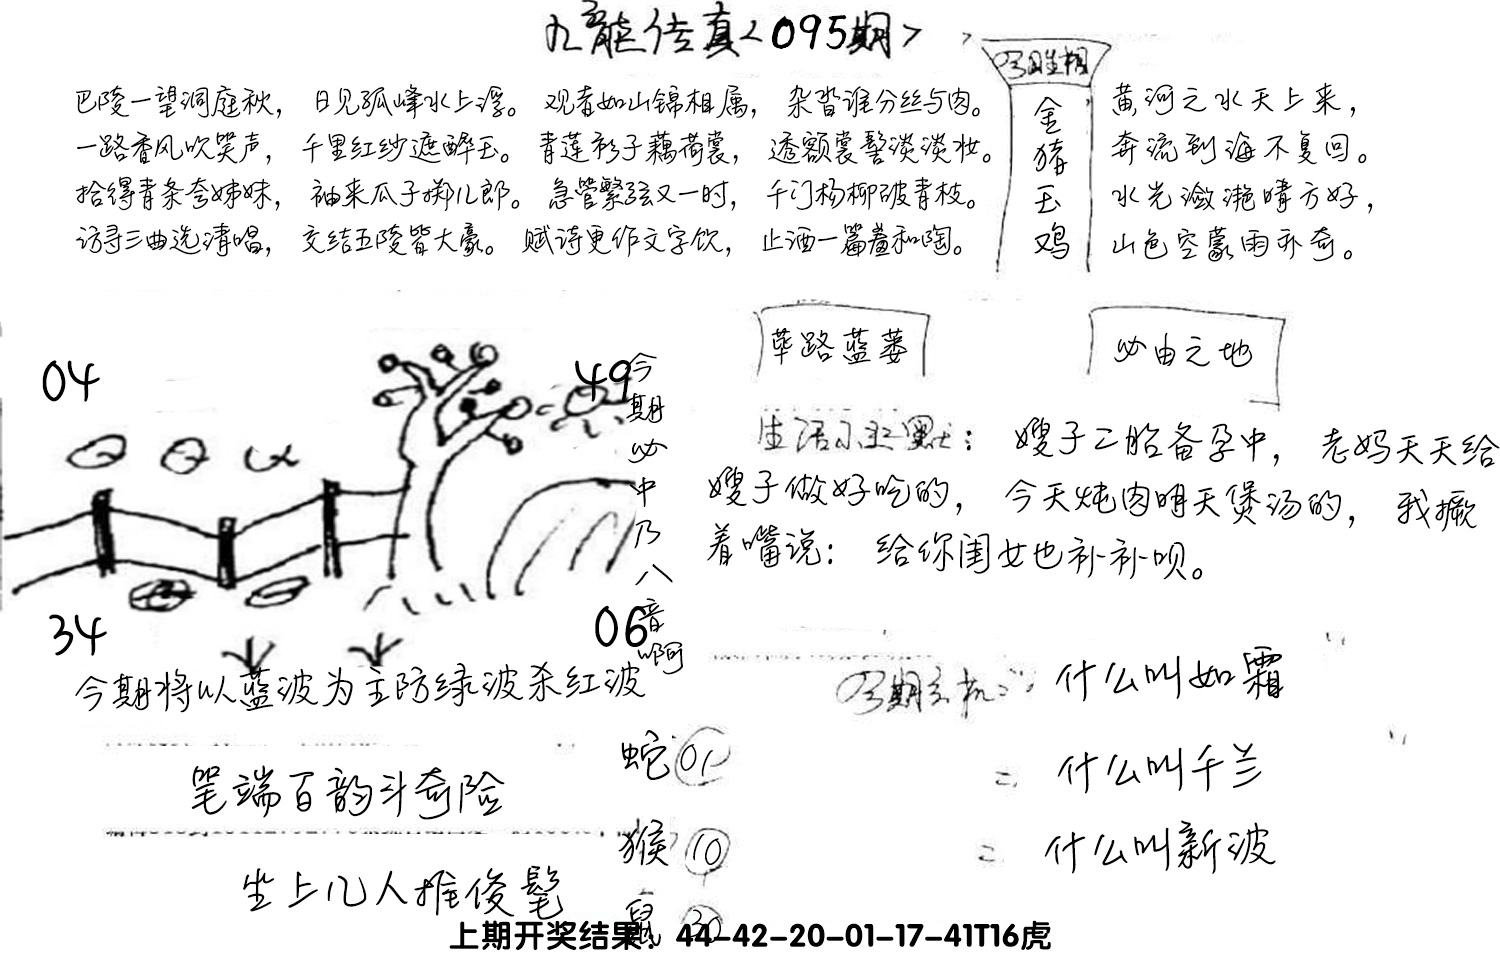 九龙传真<095期>
巴陵一望洞庭秋，日见孤峰水上浮。观者如山锦相属，杂沓谁分丝与肉。
一路香风吹笑声，千里红纱遮醉玉。青莲衫子藕荷裳，透额裳髻淡淡妆。
拾得青条夸姊妹，袖来瓜子掷儿郎。急管繁弦又一时，千门杨柳破青枝。
访寻三曲选清唱，交结五陵皆大豪。赋诗更作文字饮，止酒一篇羞和陶。
今日生相
金猪玉鸡
黄河之水天上来，
奔流到海不复回。
水光潋滟晴方好，
山色空蒙雨亦奇。
04
49
34
06
今期必中乃八音啊
今期将以蓝波为主防绿波杀红波
荜路蓝蒌
必由之地
生活小幽默：嫂子二胎备孕中，老妈天天给
嫂子做好吃的，今天炖肉明天煲汤的，我撅
着嘴说：给你闺女也补补呗。
今期玄机：什么叫如霜
什么叫千兰
什么叫新波
笔端百韵斗奇险
坐上几人推俊髦
蛇 01
猴 10
鼠 30
上期开奖结果：44-42-20-01-17-41T16虎